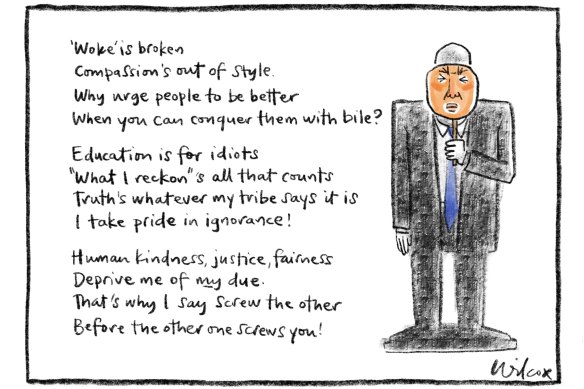 'Woke' is broken
Compassion's out of style.
Why urge people to be better
When you can conquer them with bile?
Education is for idiots
"What I reckon"'s all that counts
Truth's whatever my tribe says it is
I take pride in ignorance!
Human kindness, justice, fairness
Deprive me of my due.
That's why I say screw the other
Before the other one screws you!
Wilcox